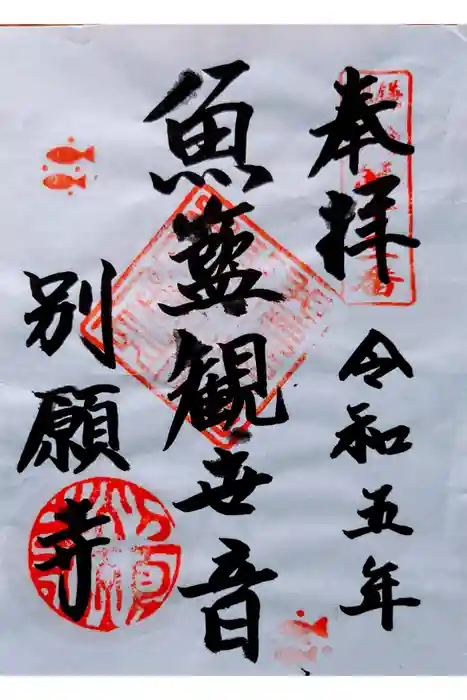 奉拝
令和五年
魚籃観世音
別願寺